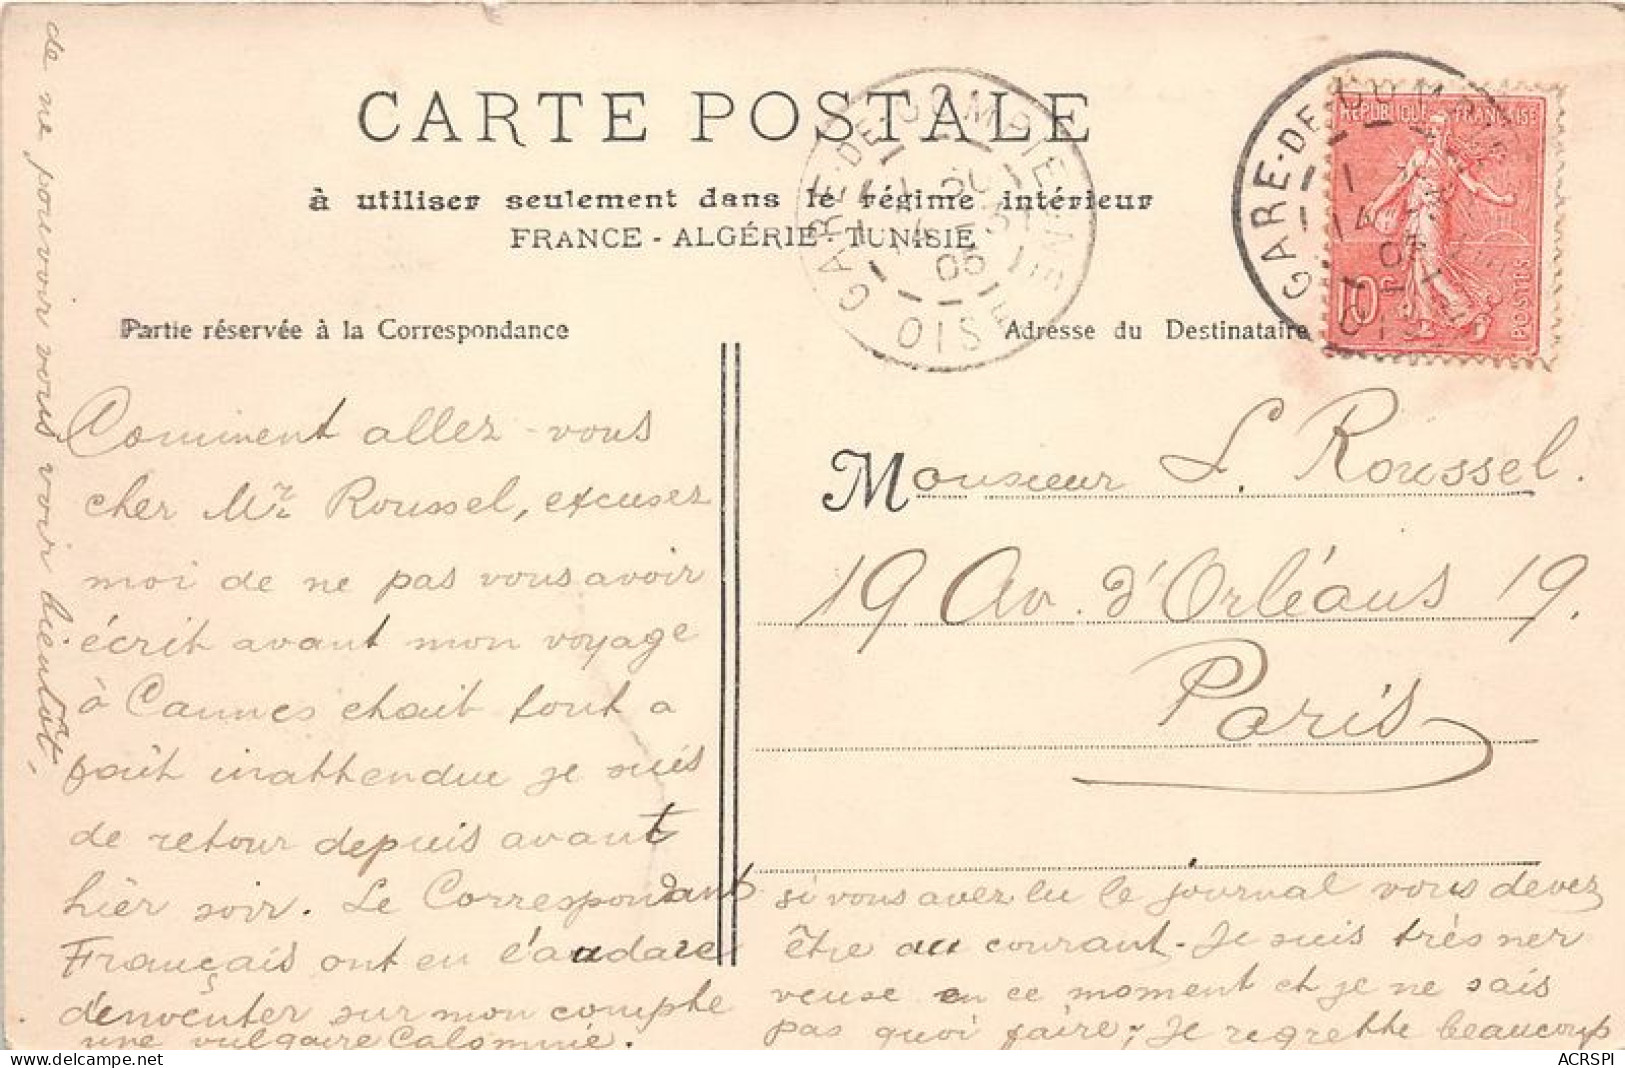 CARTE POSTALE
à utiliser seulement dans le régime intérieur
FRANCE - ALGÉRIE - TUNISIE
Partie réservée à la Correspondance
Adresse du Destinataire
GARE-DE-COMPIEGNE
OISE
05
GARE-DE-COMPIEGNE
OISE
REPUBLIQUE FRANÇAISE
10
POSTES
Monsieur L. Roussel.
19 Av. d'Orléans 19.
Paris
Comment allez-vous
cher Mr Roussel, excusez
moi de ne pas vous avoir
écrit avant mon voyage
à Cannes était tout a
fait inattendue je suis
de retour depuis avant
hier soir. Le Correspondant
Français ont eu l'audace
d'enventer sur mon compte
une vulgaire Calomnie.
si vous avez lu le journal vous devez
être au courant. Je suis très ner
veuse en ce moment et je ne sais
pas quoi faire; Je regrette beaucoup
de ne pouvoir vous voir bientôt.
delcampe.net
ACRSPI